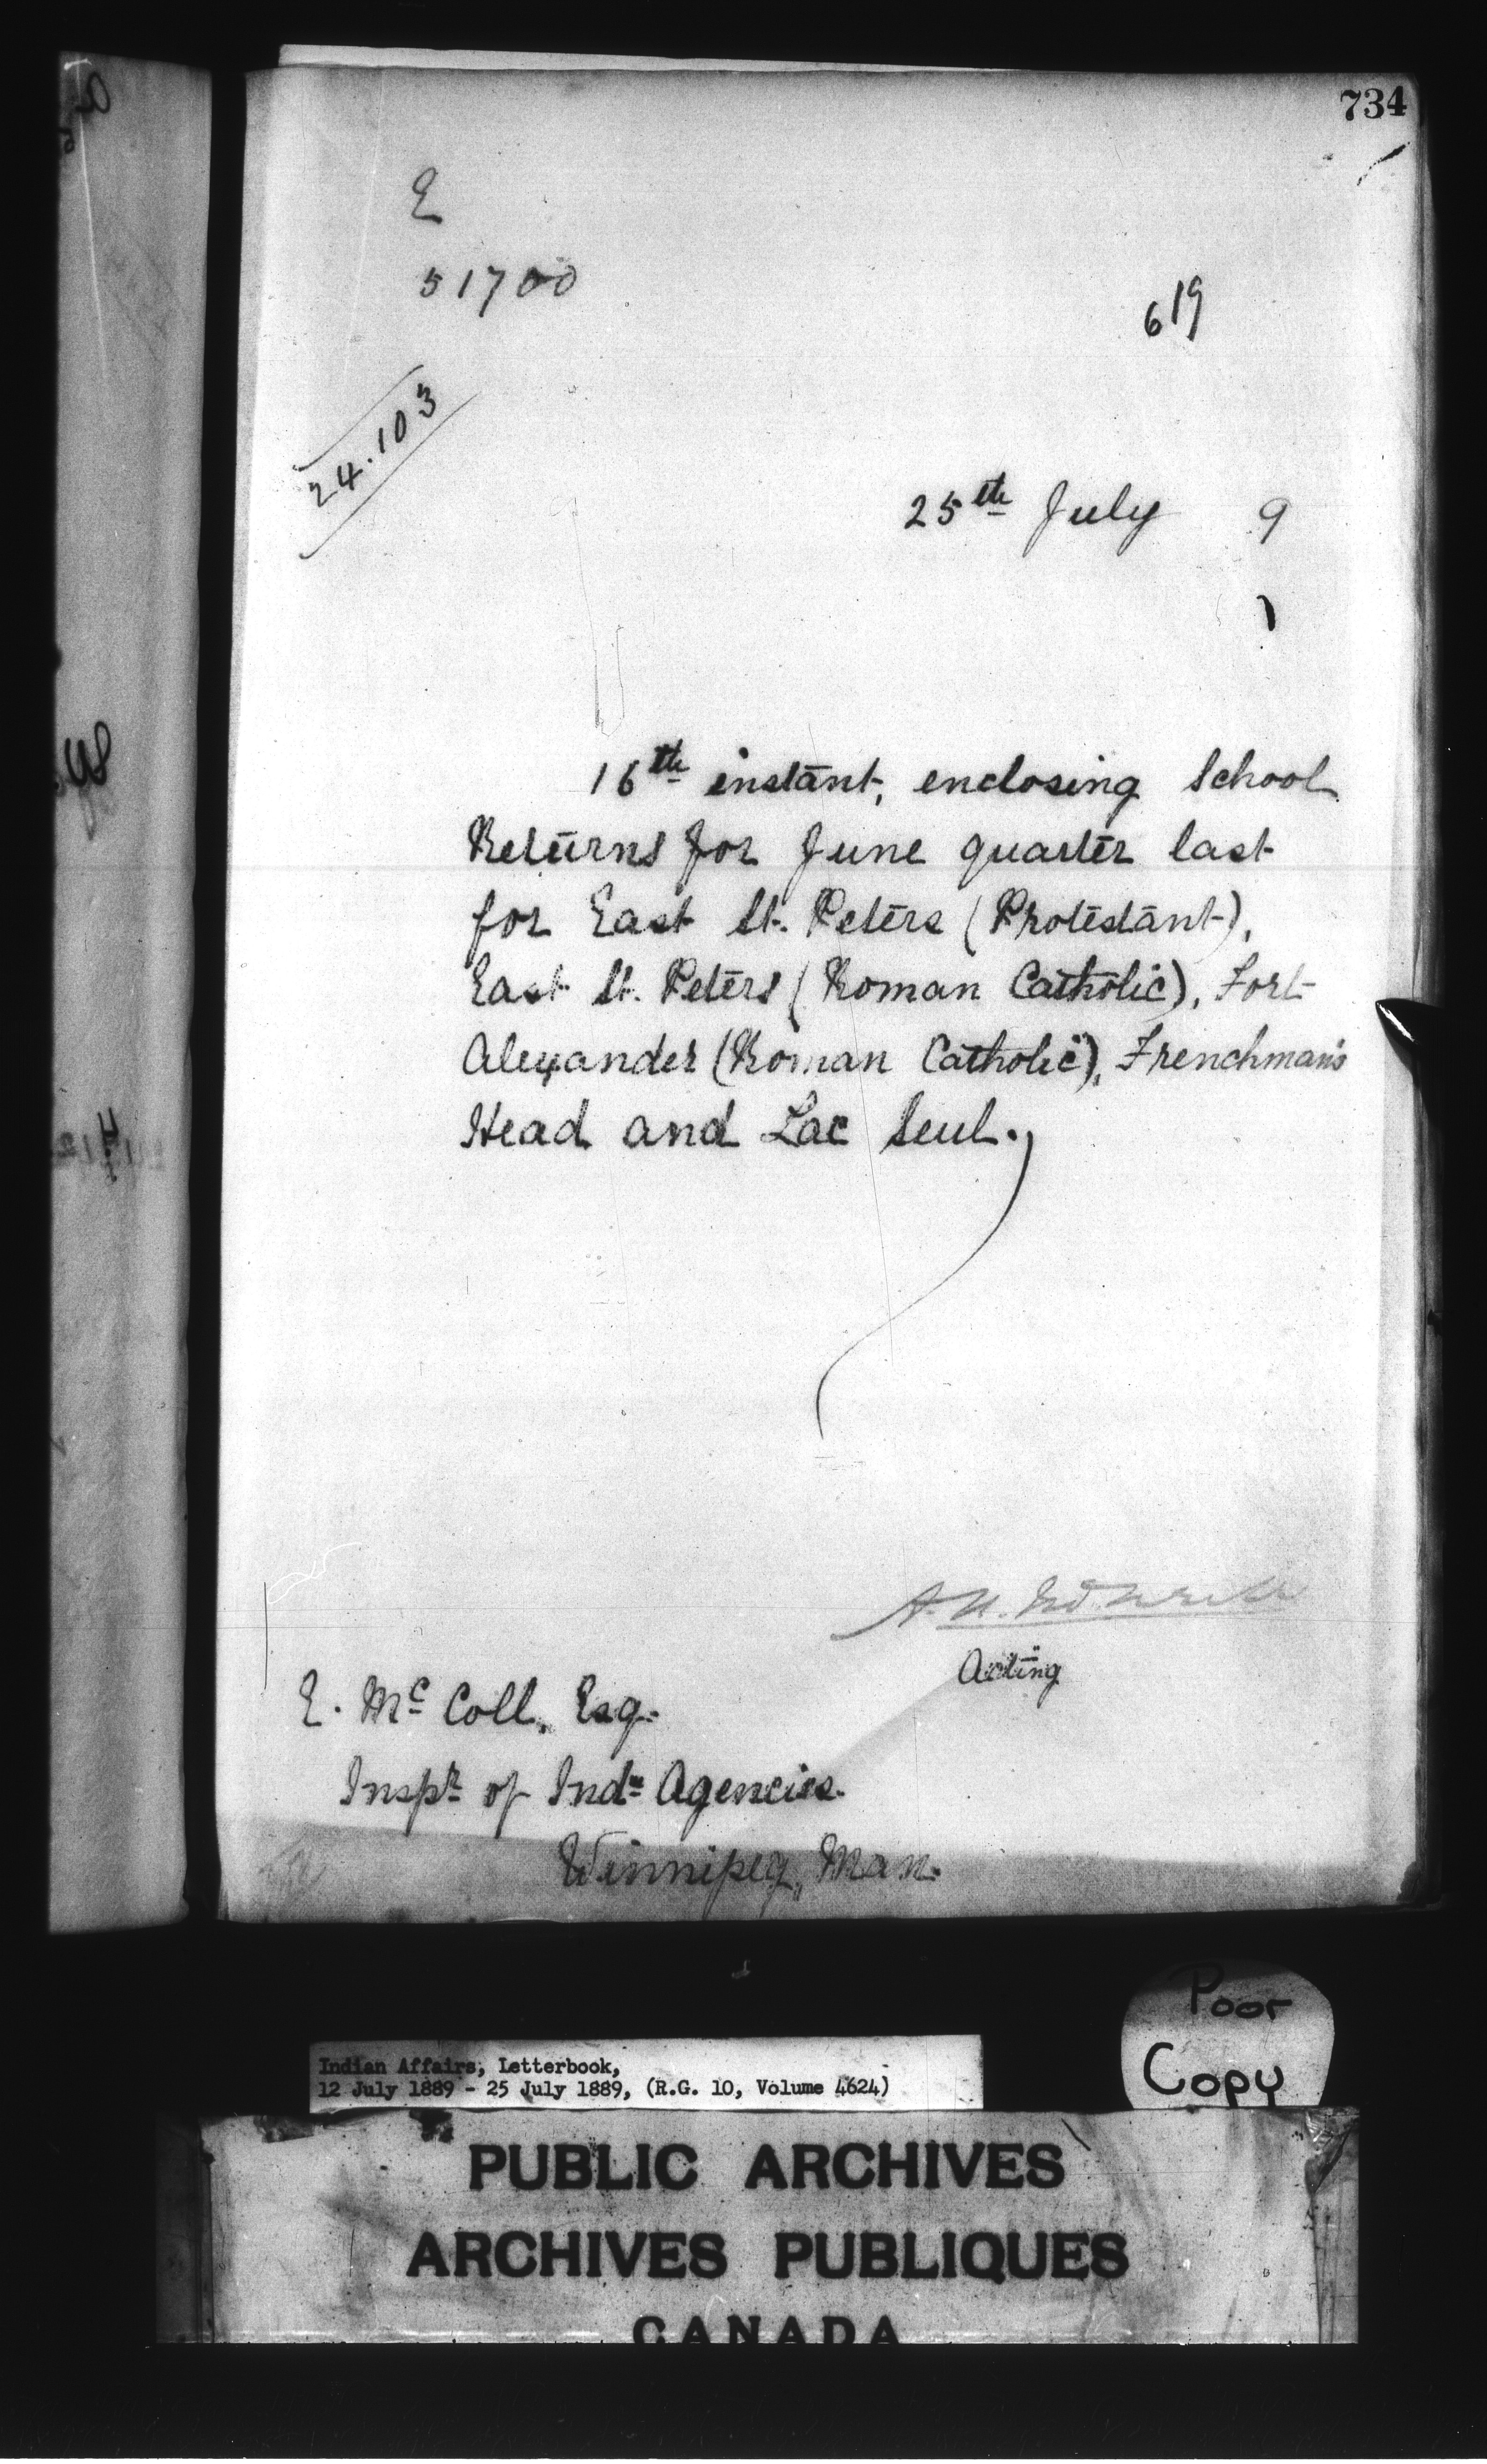 734
E
51700
619
24.103
25th July 9
16th instant, enclosing School
Returns for June quarter last
for East St. Peters (Protestant),
East St. Peters (Roman Catholic), Fort
Alexander (Roman Catholic), Frenchman's
Head and Lac Seul.
Acting
E. McColl, Esq.
Inspr of Indn Agencies.
Winnipeg, Man.
Poor
Copy
Indian Affairs, Letterbook,
12 July 1889 - 25 July 1889, (R.G. 10, Volume 4624)
PUBLIC ARCHIVES
ARCHIVES PUBLIQUES
CANADA